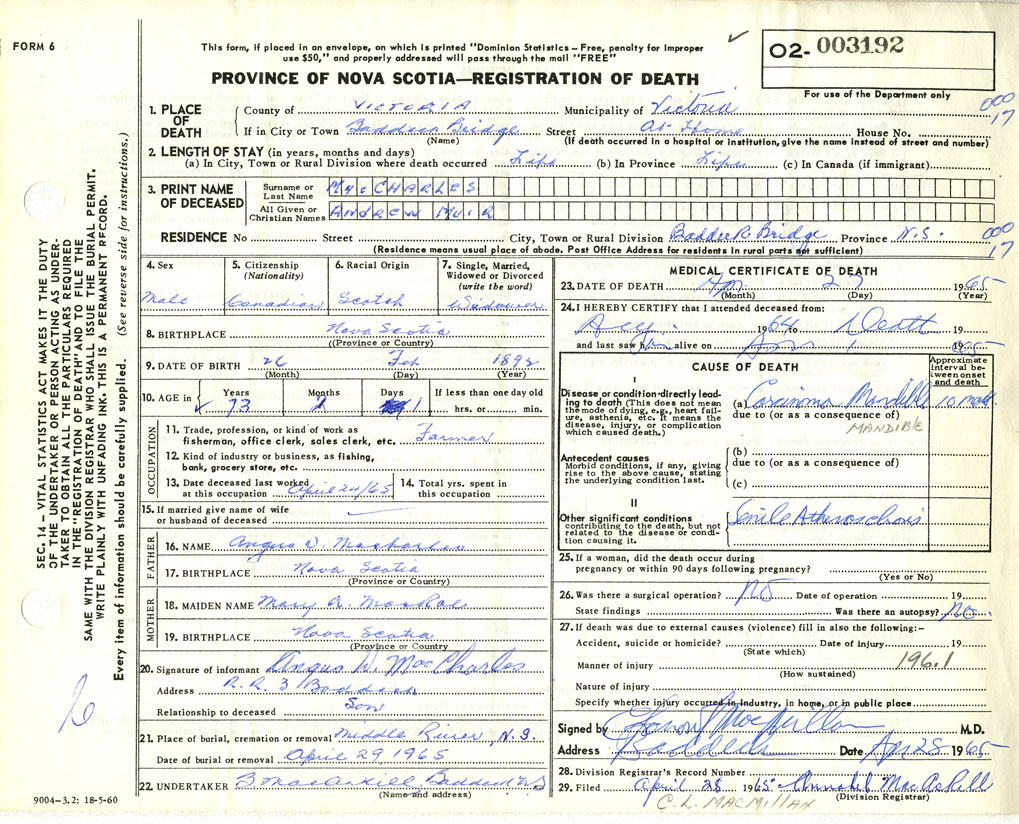 FORM 6
This form, if placed in an envelope, on which is printed "Dominion Statistics – Free, penalty for improper
use $50," and properly addressed will pass through the mail "FREE"
✓
O2- 003192
For use of the Department only
PROVINCE OF NOVA SCOTIA—REGISTRATION OF DEATH
SEC. 14 – VITAL STATISTICS ACT MAKES IT THE DUTY
OF THE UNDERTAKER OR PERSON ACTING AS UNDER-
TAKER TO OBTAIN ALL THE PARTICULARS REQUIRED
IN THE "REGISTRATION OF DEATH" AND TO FILE THE
SAME WITH THE DIVISION REGISTRAR WHO SHALL ISSUE THE BURIAL PERMIT.
WRITE PLAINLY WITH UNFADING INK. THIS IS A PERMANENT RECORD.
Every item of information should be carefully supplied. (See reverse side for instructions.)
1. PLACE OF DEATH
County of VICTORIA Municipality of Victoria
000
17
If in City or Town Baddeck Bridge Street At Home House No.
(Name) (If death occurred in a hospital or institution, give the name instead of street and number)
2. LENGTH OF STAY (in years, months and days)
(a) In City, Town or Rural Division where death occurred Life (b) In Province Life (c) In Canada (if immigrant)
3. PRINT NAME OF DECEASED
Surname or Last Name MacCHARLES
All Given or Christian Names ANDREW MUIR
RESIDENCE No Street City, Town or Rural Division Baddeck Bridge Province N.S.
000
17
(Residence means usual place of abode. Post Office Address for residents in rural parts not sufficient)
4. Sex
Male
5. Citizenship
(Nationality)
Canadian
6. Racial Origin
Scotch
7. Single, Married, Widowed or Divorced
(write the word)
Widower
8. BIRTHPLACE Nova Scotia
(Province or Country)
9. DATE OF BIRTH 26 Feb 1892
(Month) (Day) (Year)
10. AGE in Years Months Days If less than one day old
✓ 73 1 hrs. or min.
OCCUPATION
11. Trade, profession, or kind of work as
fisherman, office clerk, sales clerk, etc. Farmer
12. Kind of industry or business, as fishing,
bank, grocery store, etc.
13. Date deceased last worked
at this occupation April 24/65
14. Total yrs. spent in
this occupation
15. If married give name of wife
or husband of deceased
FATHER
16. NAME Angus D. MacCharles
17. BIRTHPLACE Nova Scotia
(Province or Country)
MOTHER
18. MAIDEN NAME Mary A. MacRae
19. BIRTHPLACE Nova Scotia
(Province or Country)
20. Signature of informant Angus W. MacCharles
Address R.R. 3 Baddeck
Relationship to deceased Son
21. Place of burial, cremation or removal Middle River, N.S.
Date of burial or removal April 29 1965
22. UNDERTAKER Baddeck NS
(Name and address)
9004–3.2: 18-5-60
MEDICAL CERTIFICATE OF DEATH
23. DATE OF DEATH Apr 27 1965
(Month) (Day) (Year)
24. I HEREBY CERTIFY that I attended deceased from:
1964 to Death 19
and last saw him alive on Apr 1965
CAUSE OF DEATH
Approximate interval between onset and death
I
Disease or condition directly lead-
ing to death (This does not mean
the mode of dying, e.g., heart fail-
ure, asthenia, etc. It means the
disease, injury, or complication
which caused death.)
(a) Carcinoma Mandible 10 month
due to (or as a consequence of)
MANDIBLE
Antecedent causes
Morbid conditions, if any, giving
rise to the above cause, stating
the underlying condition last.
(b)
due to (or as a consequence of)
(c)
II
Other significant conditions
contributing to the death, but not
related to the disease or condi-
tion causing it.
Senile Atherosclerosis
25. If a woman, did the death occur during
pregnancy or within 90 days following pregnancy?
(Yes or No)
26. Was there a surgical operation? No Date of operation 19
State findings Was there an autopsy? No
27. If death was due to external causes (violence) fill in also the following:–
Accident, suicide or homicide? Date of injury 19
(State which)
196.1
Manner of injury
(How sustained)
Nature of injury
Specify whether injury occurred in industry, in home, or in public place
Signed by MacMillan M.D.
Address Baddeck Date Apr 28 1965
28. Division Registrar's Record Number
29. Filed April 28 1965 Annabel MacAskill
(Division Registrar)
C. L. MACMILLAN